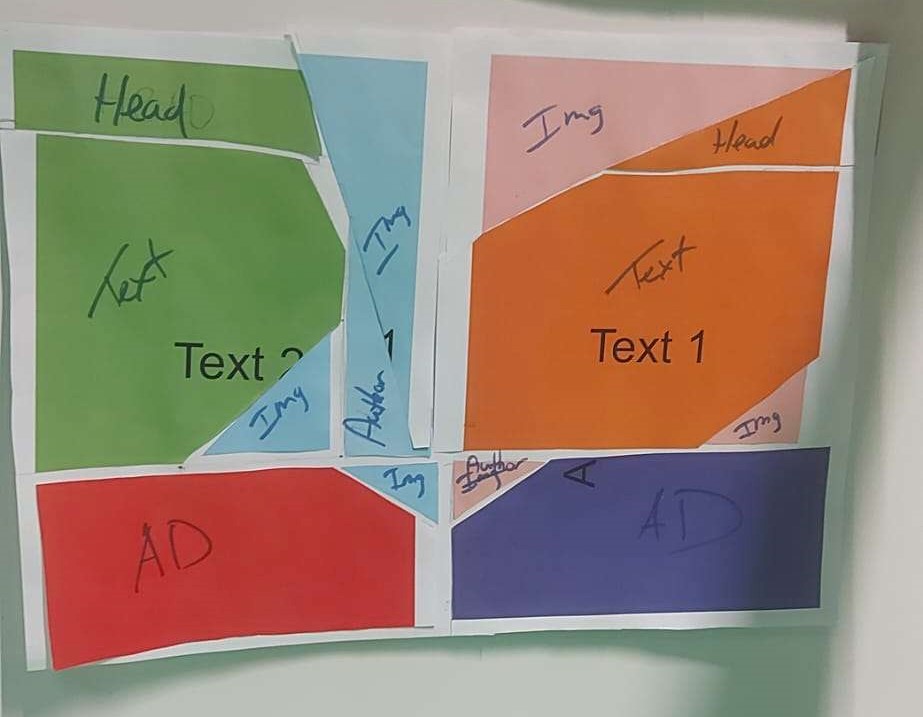 Head
Img
Text
Text 2
Img
Author
1
Img
AD
Img
Head
Text
Text 1
Img
Author
A
AD